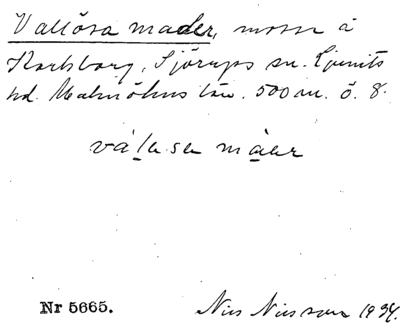 Vallösa mader, mosse å
Karlsborg, Sjörups sn. Ljunits
hd. Malmöhus län. 500 m. ö. 8.
våḷasa måer
Nr 5665. Nils Nilsson 1934.